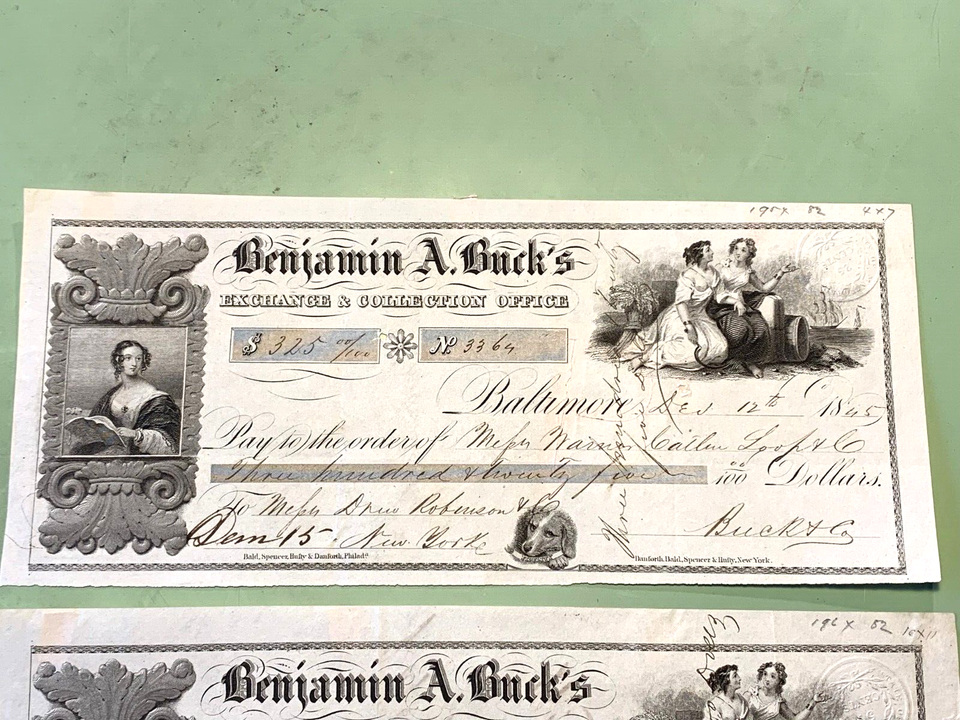 195x 82 4x7
Benjamin A. Buck's
EXCHANGE & COLLECTION OFFICE
$ 325 00/100 No 3364
Baltimore, Dec 12th 1845
Pay to the order of Messrs Warner Loop & Co
Three hundred & twenty five 00/100 Dollars.
To Messrs Drew Robinson & Co
Dem 15. New York
Buck & Co
Bald, Spencer, Hufty & Danforth, Philada.
Danforth, Bald, Spencer & Hufty, New York.
196x 82 10x11
Benjamin A. Buck's